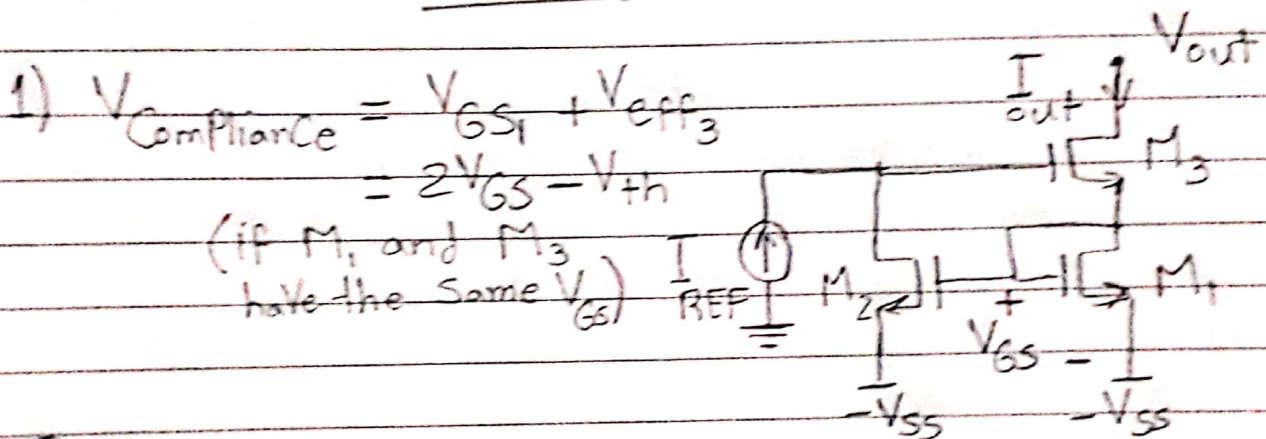 1) V_Compliance = V_GS1 + V_eff3
= 2V_GS - V_th
(if M_1 and M_3
have the same V_GS)
V_out
I_out
M_3
I_REF
M_2
M_1
+
V_GS -
-V_SS
-V_SS